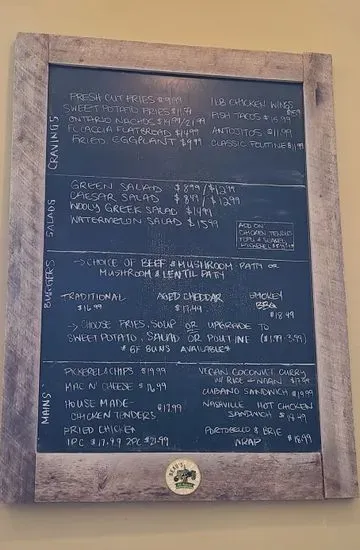 CRAVINGS
FRESH CUT FRIES $9.99
SWEET POTATO FRIES $11.79
ONTARIO NACHOS $14.99/21.99
FOCACCIA FLATBREAD $14.99
FRIED EGGPLANT $9.99
1LB CHICKEN WINGS
FISH TACOS $15.99
ANTOJITOS $11.99
CLASSIC POUTINE $11.99
SALADS
GREEN SALAD $8.99/$12.99
CAESAR SALAD $8.99/$12.99
WOOLY GREEK SALAD $14.99
WATERMELON SALAD $15.99
ADD ON
CHICKEN TENDER
TOFU &
BURGERS
→ CHOICE OF BEEF & MUSHROOM PATTY OR
MUSHROOM & LENTIL PATTY
TRADITIONAL
$16.99
AGED CHEDDAR
$17.49
SMOKEY
BBQ
$18.49
→ CHOOSE FRIES, SOUP OR UPGRADE TO
SWEET POTATO, SALAD OR POUTINE ($1.99-3.99)
* GF BUNS AVAILABLE *
MAINS
PICKEREL & CHIPS $19.99
MAC N' CHEESE $16.99
HOUSE MADE
CHICKEN TENDERS $17.99
FRIED CHICKEN
1PC $17.49 2PC $21.99
VEGAN COCONUT CURRY
W/ RICE & NAAN
CUBANO SANDWICH $19.99
NASHVILLE HOT CHICKEN
SANDWICH $19.49
PORTOBELLO & BRIE
WRAP $18.99